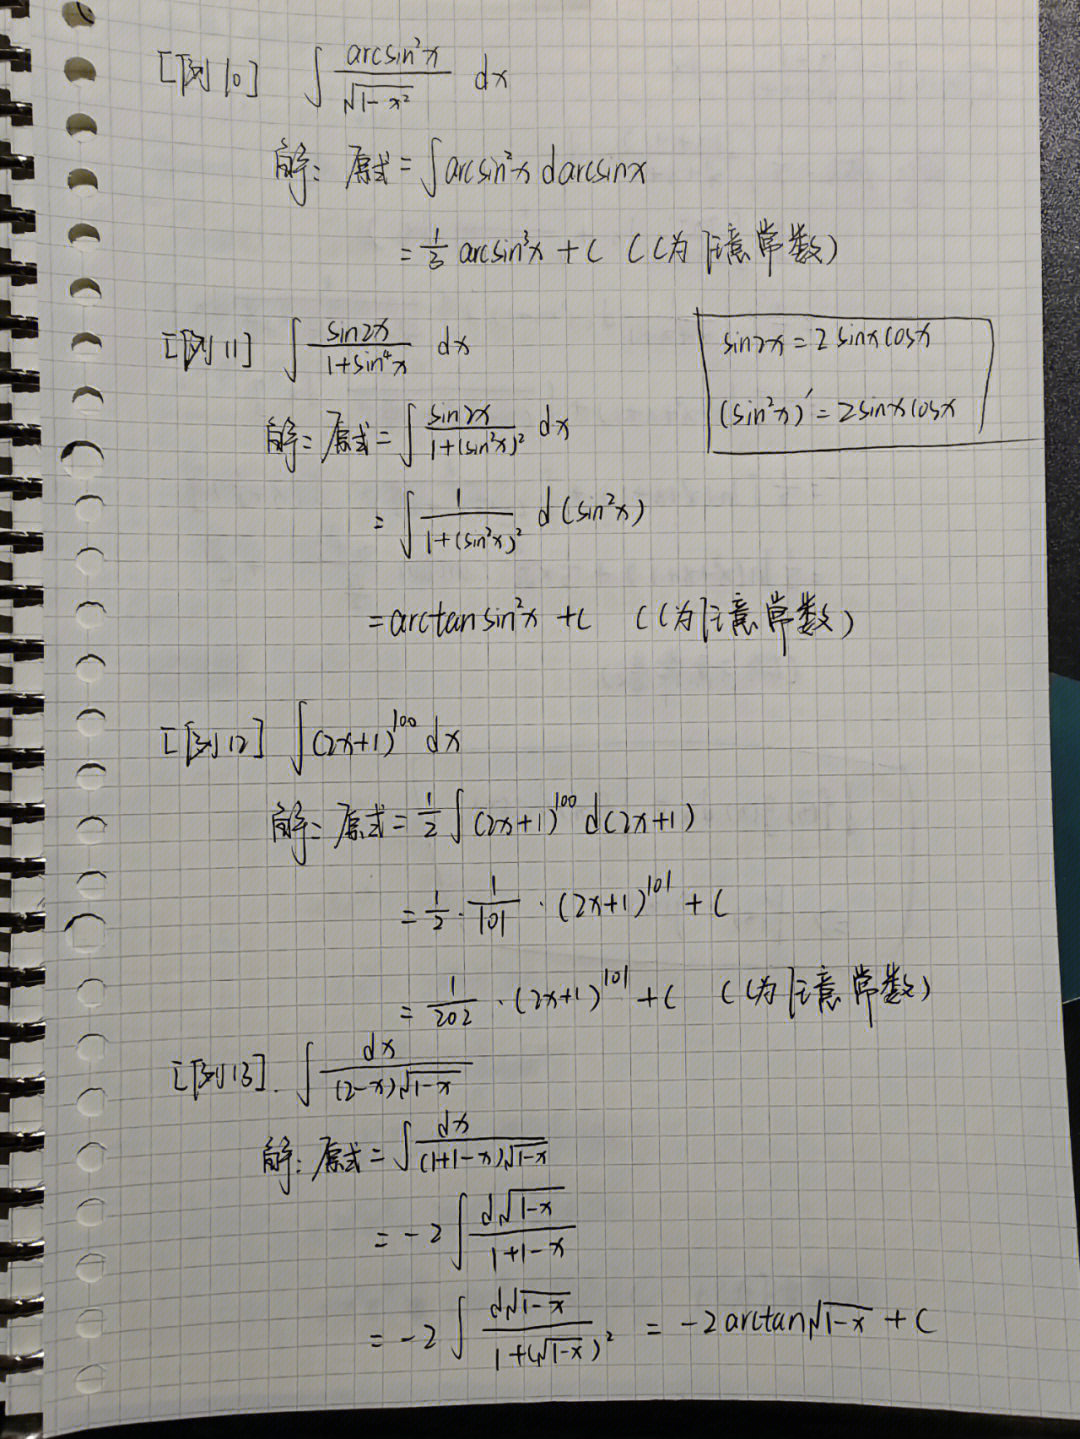 [例10] ∫ arcsin²x / √(1-x²) dx
解: 原式 = ∫ arcsin²x d arcsinx
= 1/3 arcsin³x + C (C为任意常数)
[例11] ∫ sin2x / (1+sin⁴x) dx
sin2x = 2 sinx cosx
(sin²x)′ = 2sinx cosx
解: 原式 = ∫ sin2x / (1+(sin²x)²) dx
= ∫ 1 / (1+(sin²x)²) d(sin²x)
= arctan sin²x + C (C为任意常数)
[例12] ∫(2x+1)¹⁰⁰ dx
解: 原式 = 1/2 ∫(2x+1)¹⁰⁰ d(2x+1)
= 1/2 · 1/101 · (2x+1)¹⁰¹ + C
= 1/202 · (2x+1)¹⁰¹ + C (C为任意常数)
[例13]. ∫ dx / ((2-x)√(1-x))
解: 原式 = ∫ dx / ((1+1-x)√(1-x))
= -2 ∫ d√(1-x) / (1+1-x)
= -2 ∫ d√(1-x) / (1+(√(1-x))²) = -2 arctan√(1-x) + C